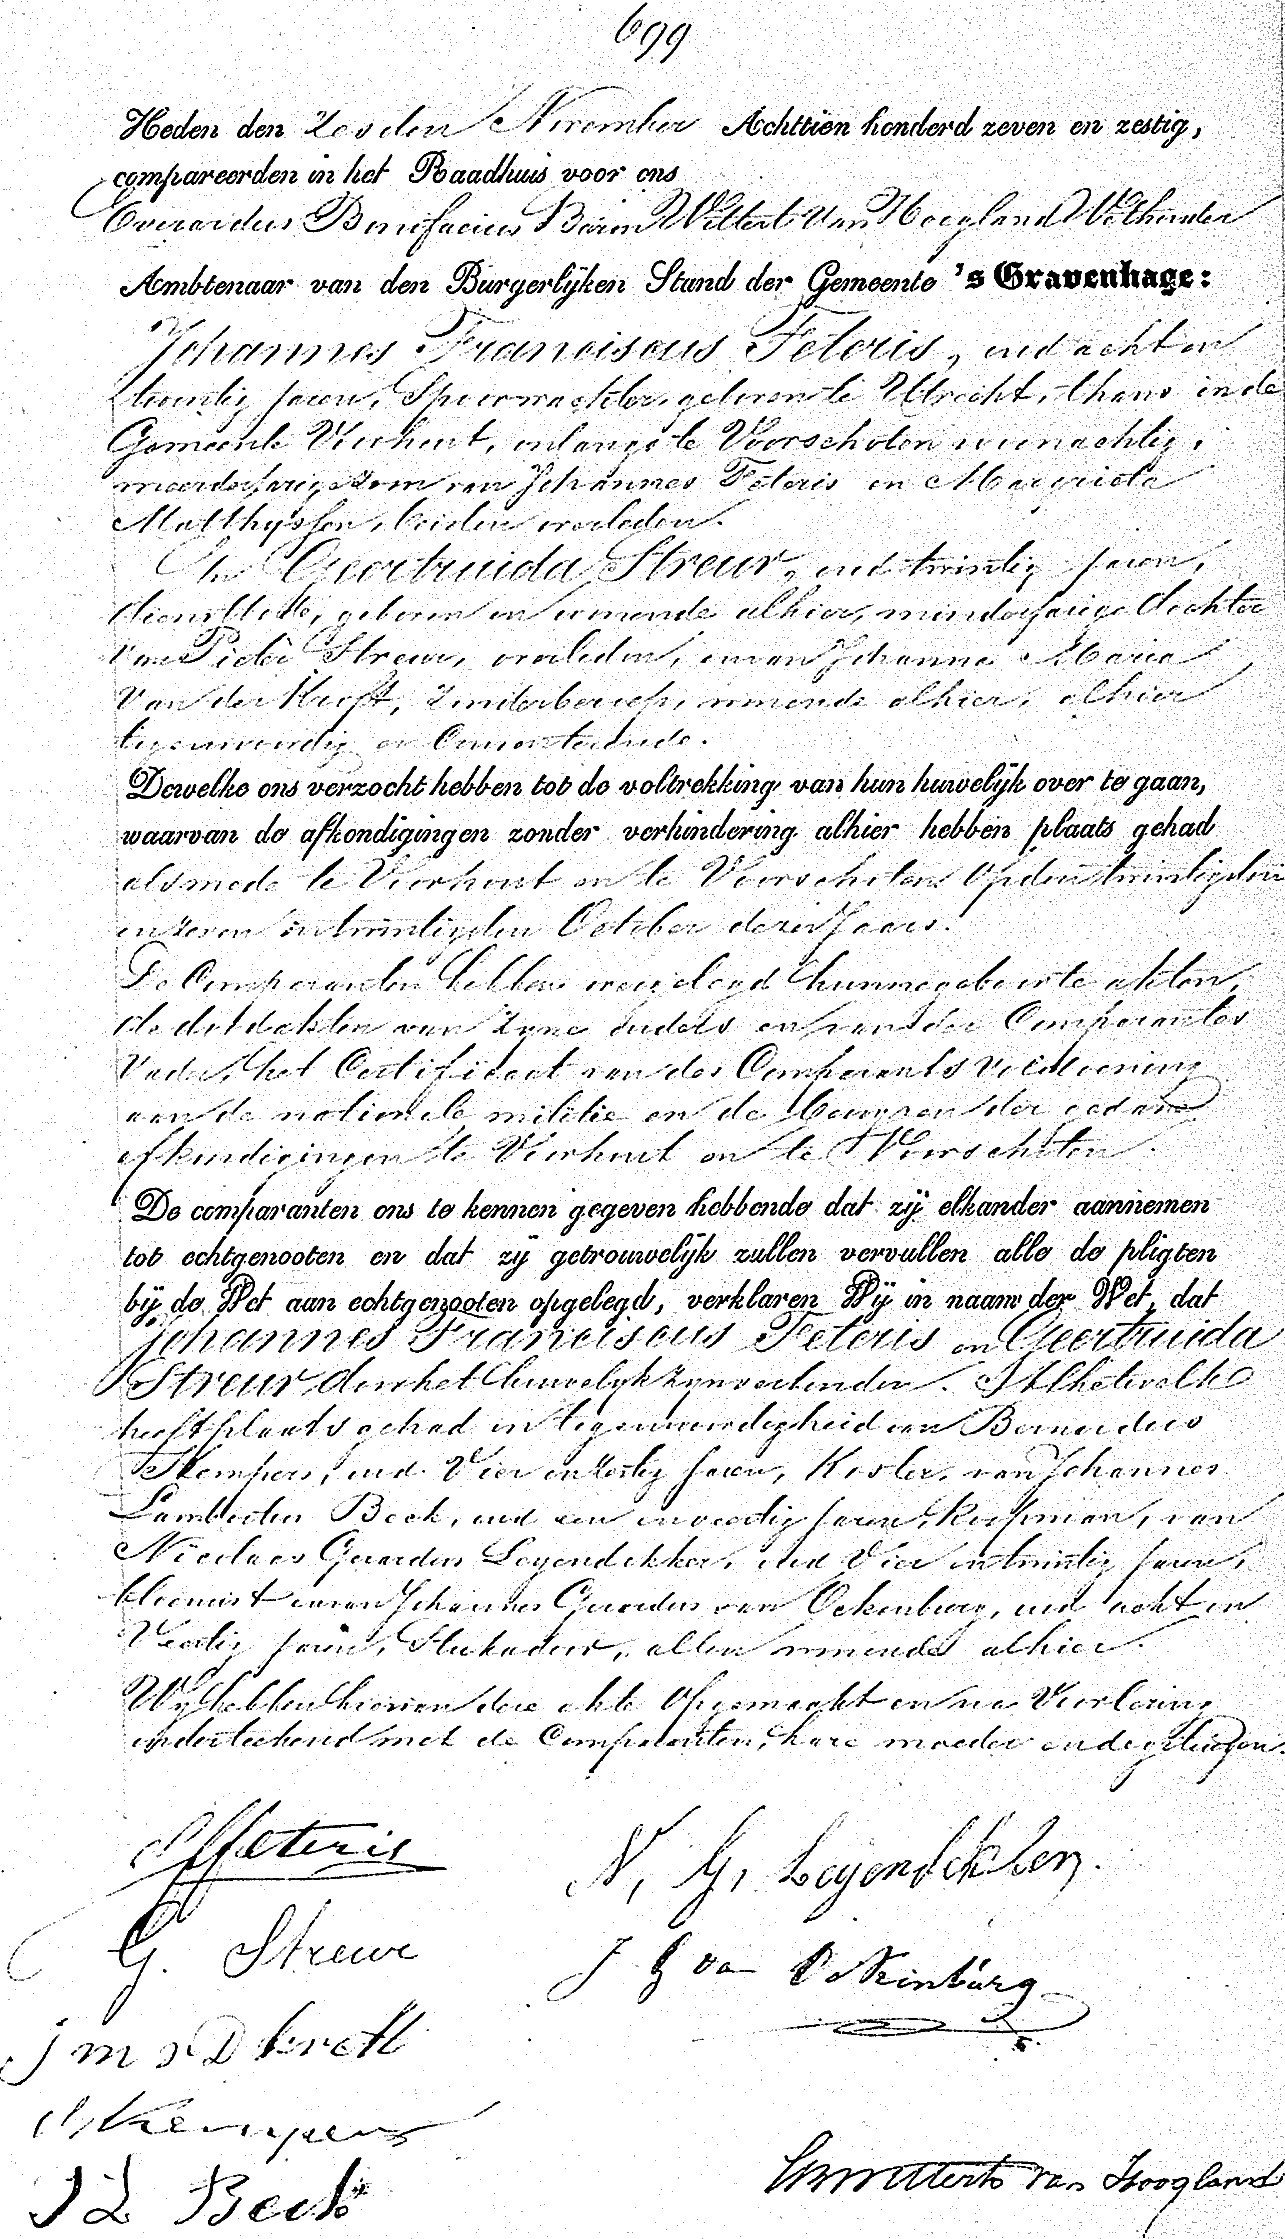 699
Heden den Zesden November Achttien honderd zeven en zestig,
compareerden in het Raadhuis voor ons
Everardus Bonifacius Baron Wittert Van Hoogland Wethouder
Ambtenaar van den Burgerlijken Stand der Gemeente 's Gravenhage:
Johannes Franciscus Feteris, oud acht en
twintig jaren, Spoorwachter, geboren te Utrecht, thans in de
Gemeente Voorhout, onlangs te Voorschoten woonachtig,
meerderjarige zoon van Johannes Feteris en Margrieta
Matthyssen, beiden overleden.
En Geertruida Streur, oud twintig jaren,
dienstbode, geboren en wonende alhier, minderjarige dochter
van Pieter Streur, overleden, en van Johanna Maria
Van der Kroft, zonder beroep, wonende alhier, alhier
tegenwoordig en Consenteerende.
Dewelke ons verzocht hebben tot de voltrekking van hun huwelijk over te gaan,
waarvan de afkondigingen zonder verhindering alhier hebben plaats gehad
alsmede te Voorhout en te Voorschoten op den twintigsten
en zeven en twintigsten October dezes Jaars.
De Comparanten hebben overgelegd hunne geboorte akten,
de dood akten van zyne ouders en van der Comparantes
Vader, het Certificaat van des Comparants voldoening
aan de nationale militie en de bewyzen der gedane
afkondigingen te Voorhout en te Voorschoten.
De comparanten ons te kennen gegeven hebbende dat zij elkander aannemen
tot echtgenooten en dat zij getrouwelijk zullen vervullen alle de pligten
bij de Wet aan echtgenooten opgelegd, verklaren Wij in naam der Wet, dat
Johannes Franciscus Feteris en Geertruida
Streur door het huwelyk zyn verbonden. Al hetwelk
heeft plaats gehad in tegenwoordigheid van Bernardus
Kempers, oud Vier en zestig jaren, Koster, van Johannes
Lambertus Beck, oud een en veertig jaren, koopman, van
Nicolaas Gerardus Leyendekker, oud Vier en twintig jaren,
bloemist en van Johannes Gerardus van Ockenburg, oud acht en
Veertig jaren, Stukadoor, allen wonende alhier.
Wy hebben hiervan deze akte Opgemaakt en na Voorlezing
onderteekend met de Comparanten, hare moeder en de getuigen.
J F Feteris
N, G, Leyendekker.
G. Streur
J G van Ockenburg
J M v D kroft
B Kempers
J L Beck
EBWittert van Hoogland